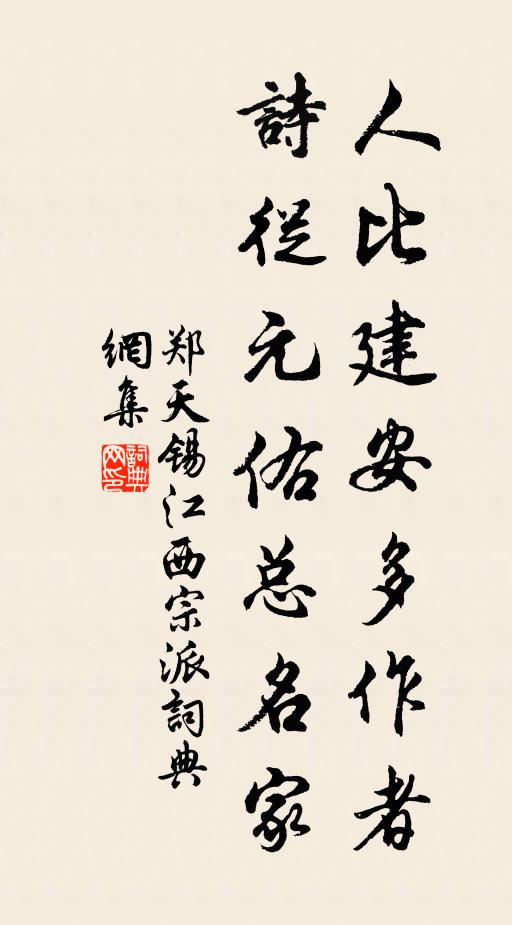 人比建安多作者
詩從元佑总名家
郑天锡江西宗派詞典
網集
詞典網印